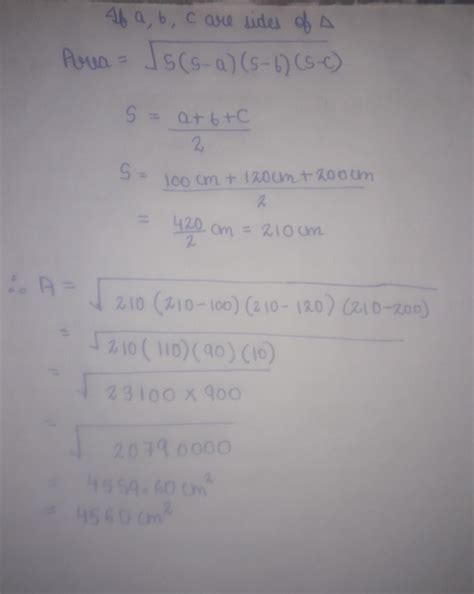 If a, b, c are sides of Δ
Area = √S(S-a)(S-b)(S-c)
S = a+b+c
2
S = 100cm + 120cm + 200cm
2
= 420/2 cm = 210cm
∴ A = √210(210-100)(210-120)(210-200)
= √210(110)(90)(10)
= √23100 × 900
= √20790000
= 4559.60 cm²
= 4560 cm²